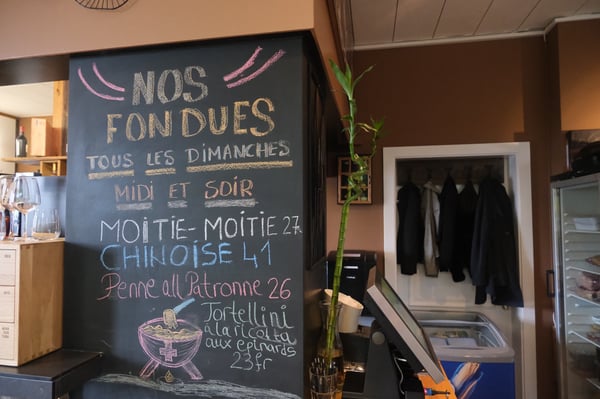 NOS
FONDUES
TOUS LES DIMANCHES
MIDI ET SOIR
MOITIE-MOITIE 27
CHINOISE 41
Penne all Patronne 26
Tortellini
à la ricolta
aux épinards
23fr